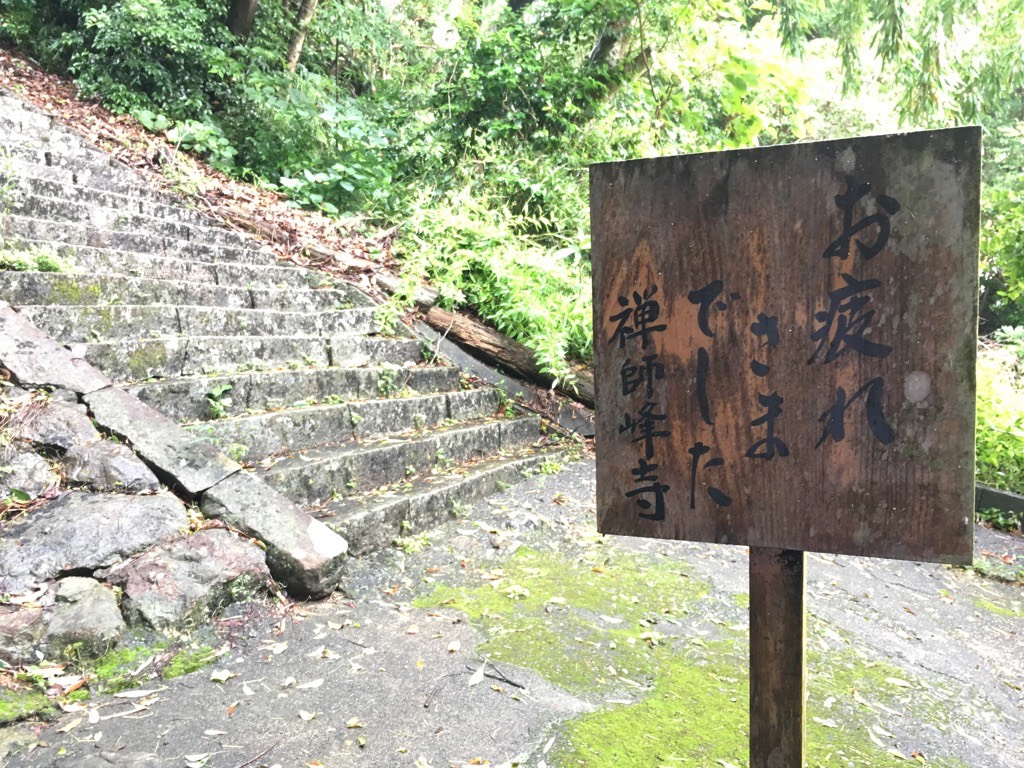 お疲れ
さま
でした
禅師峰寺